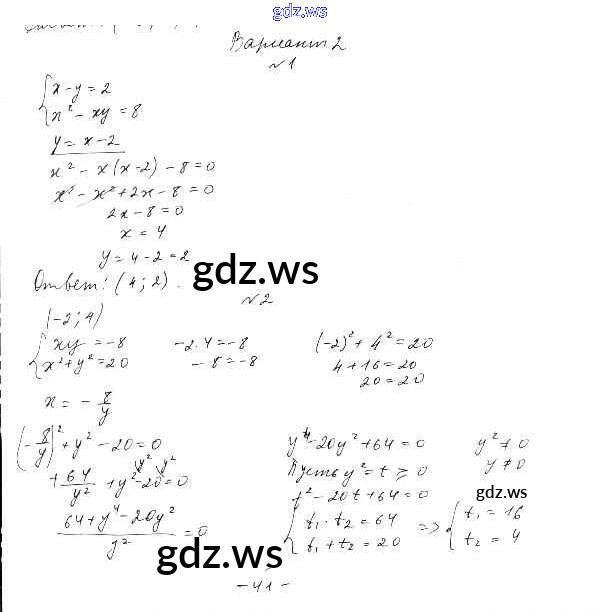 gdz.ws
Вариант 2
№1
{ x - y = 2
x² - xy = 8
y = x - 2
x² - x(x-2) - 8 = 0
x² - x² + 2x - 8 = 0
2x - 8 = 0
x = 4
y = 4 - 2 = 2
Ответ: (4; 2).
gdz.ws
№2
(-2; 4)
{ xy = -8
x² + y² = 20
-2·4 = -8
-8 = -8
(-2)² + 4² = 20
4 + 16 = 20
20 = 20
x = - 8/y
(-8/y)² + y² - 20 = 0
+ 64/y² + y² - 20 = 0
(64 + y⁴ - 20y²)/y² = 0
y⁴ - 20y² + 64 = 0
y² ≠ 0
y ≠ 0
Пусть y² = t ≥ 0
t² - 20t + 64 = 0
gdz.ws
{ t₁ · t₂ = 64
t₁ + t₂ = 20
=> { t₁ = 16
t₂ = 4
gdz.ws
- 41 -